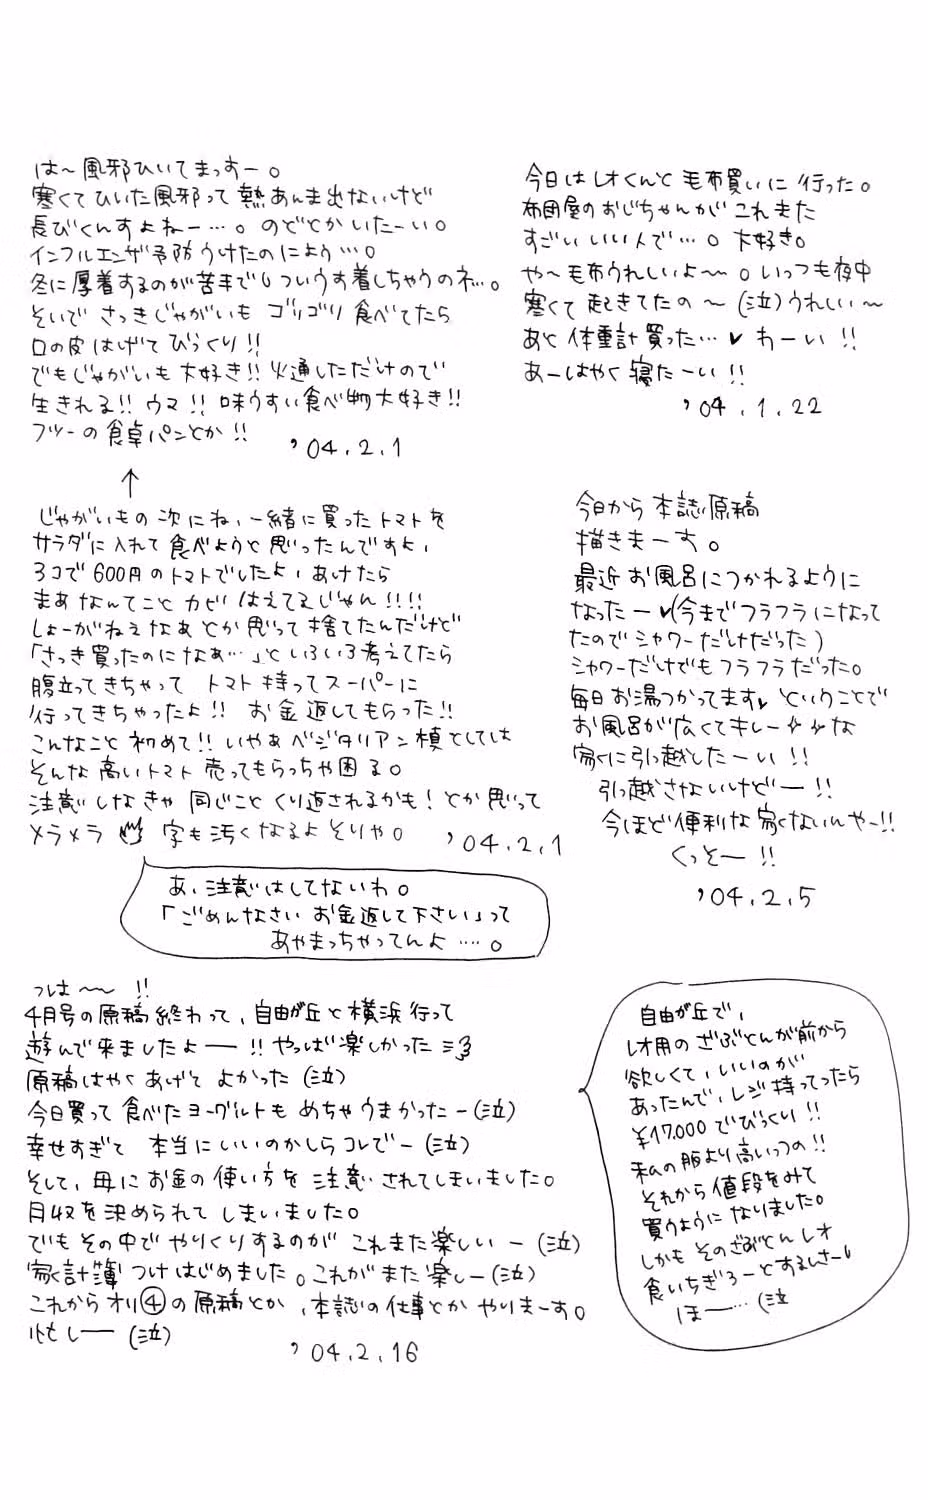 今日はレオくんと毛布買いに行った。
布団屋のおじちゃんがこれまた
すごいいい人で…。大好き。
や〜毛布うれしいよ〜。いっつも夜中
寒くて起きてたの〜(泣)うれしい〜
あと体重計買った…♥わーい!!
あーはやく寝たーい!!
'04.1.22
は〜風邪ひいてまっすー。
寒くてひいた風邪って熱あんま出ないけど
長びくんすよねー…。のどとかいたーい。
インフルエンザ予防うけたのによう…。
冬に厚着するのが苦手でついうす着しちゃうのネ…。
そいでさっきじゃがいもゴリゴリ食べてたら
口の皮はげてびっくり!!
でもじゃがいも大好き!!火通しただけので
生きれる!!ウマ!!味うすい食べ物大好き!!
フツーの食卓パンとか!!
'04.2.1
↑
じゃがいもの次にね、一緒に買ったトマトを
サラダに入れて食べようと思ったんですよ、
3コで600円のトマトでしたよ、あけたら
まあなんてことカビはえてるじゃん!!!!
しょーがねえなあとか思って捨てたんだけど
「さっき買ったのになぁ…」といろいろ考えてたら
腹立ってきちゃってトマト持ってスーパーに
行ってきちゃったよ!!お金返してもらった!!
こんなこと初めて!!いやぁベジタリアン槙としては
そんな高いトマト売ってもらっちゃ困る。
注意しなきゃ同じことくり返されるかも!とか思って
メラメラ 字も汚くなるよそりゃ。
'04.2.1
あ、注意はしてないわ。
「ごめんなさいお金返して下さい」って
あやまっちゃってんよ…。
今日から本誌原稿
描きまーす。
最近お風呂につかれるように
なったー♥(今までフラフラになって
たのでシャワーだけだった)
シャワーだけでもフラフラだった。
毎日お湯つかってます♥ということで
お風呂が広くてキレーな
家に引っ越したーい!!
引っ越さないけどー!!
今ほど便利な家ないんやー!!
くっそー!!
'04.2.5
っは〜〜!!
4月号の原稿終わって、自由が丘と横浜行って
遊んで来ましたよー!!やっぱ楽しかった
原稿はやくあげてよかった(泣)
今日買って食べたヨーグルトもめちゃうまかったー(泣)
幸せすぎて本当にいいのかしらコレでー(泣)
そして、母にお金の使い方を注意されてしまいました。
月収を決められてしまいました。
でもその中でやりくりするのがこれまた楽しいー(泣)
家計簿つけはじめました。これがまた楽しー(泣)
これからオリ④の原稿とか、本誌の仕事とかやりまーす。
忙しー(泣)
'04.2.16
自由が丘で、
レオ用のざぶとんが前から
欲しくて、いいのが
あったんで、レジ持ってったら
¥17,000でびっくり!!
私の服より高いっつの!!
それから値段をみて
買うようになりました。
しかもそのざぶとんレオ
食いちぎろーとするしさー!
ほー…(泣